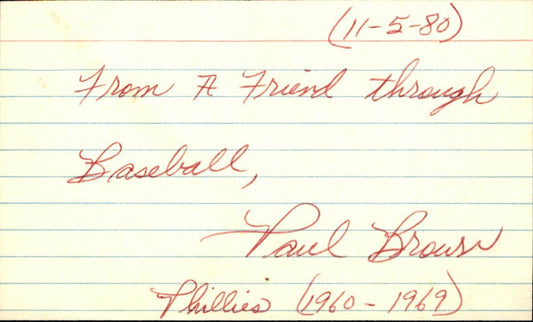 (11-5-80)
From A Friend through
Baseball,
Paul Brown
Phillies (1960-1969)